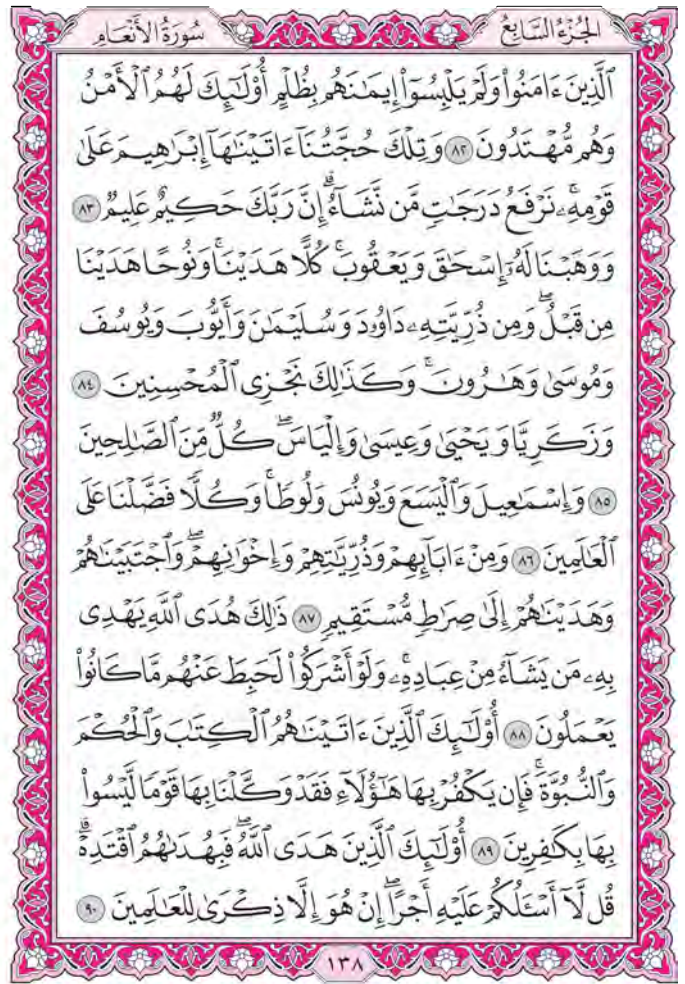 الجُزْءُ السَّابِعُ
سُورَةُ الأَنْعَامِ
ٱلَّذِينَ ءَامَنُوا۟ وَلَمْ يَلْبِسُوٓا۟ إِيمَـٰنَهُم بِظُلْمٍ أُو۟لَـٰٓئِكَ لَهُمُ ٱلْأَمْنُ
وَهُم مُّهْتَدُونَ ٨٢ وَتِلْكَ حُجَّتُنَآ ءَاتَيْنَـٰهَآ إِبْرَٰهِيمَ عَلَىٰ
قَوْمِهِۦۚ نَرْفَعُ دَرَجَـٰتٍ مَّن نَّشَآءُۗ إِنَّ رَبَّكَ حَكِيمٌ عَلِيمٌ ٨٣
وَوَهَبْنَا لَهُۥٓ إِسْحَـٰقَ وَيَعْقُوبَۚ كُلًّا هَدَيْنَاۚ وَنُوحًا هَدَيْنَا
مِن قَبْلُۖ وَمِن ذُرِّيَّتِهِۦ دَاوُۥدَ وَسُلَيْمَـٰنَ وَأَيُّوبَ وَيُوسُفَ
وَمُوسَىٰ وَهَـٰرُونَۚ وَكَذَٰلِكَ نَجْزِى ٱلْمُحْسِنِينَ ٨٤
وَزَكَرِيَّا وَيَحْيَىٰ وَعِيسَىٰ وَإِلْيَاسَۖ كُلٌّ مِّنَ ٱلصَّـٰلِحِينَ
٨٥ وَإِسْمَـٰعِيلَ وَٱلْيَسَعَ وَيُونُسَ وَلُوطًاۚ وَكُلًّا فَضَّلْنَا عَلَى
ٱلْعَـٰلَمِينَ ٨٦ وَمِنْ ءَابَآئِهِمْ وَذُرِّيَّـٰتِهِمْ وَإِخْوَٰنِهِمْۖ وَٱجْتَبَيْنَـٰهُمْ
وَهَدَيْنَـٰهُمْ إِلَىٰ صِرَٰطٍ مُّسْتَقِيمٍ ٨٧ ذَٰلِكَ هُدَى ٱللَّهِ يَهْدِى
بِهِۦ مَن يَشَآءُ مِنْ عِبَادِهِۦۚ وَلَوْ أَشْرَكُوا۟ لَحَبِطَ عَنْهُم مَّا كَانُوا۟
يَعْمَلُونَ ٨٨ أُو۟لَـٰٓئِكَ ٱلَّذِينَ ءَاتَيْنَـٰهُمُ ٱلْكِتَـٰبَ وَٱلْحُكْمَ
وَٱلنُّبُوَّةَۚ فَإِن يَكْفُرْ بِهَا هَـٰٓؤُلَآءِ فَقَدْ وَكَّلْنَا بِهَا قَوْمًا لَّيْسُوا۟
بِهَا بِكَـٰفِرِينَ ٨٩ أُو۟لَـٰٓئِكَ ٱلَّذِينَ هَدَى ٱللَّهُۖ فَبِهُدَىٰهُمُ ٱقْتَدِهْۗ
قُل لَّآ أَسْـَٔلُكُمْ عَلَيْهِ أَجْرًاۖ إِنْ هُوَ إِلَّا ذِكْرَىٰ لِلْعَـٰلَمِينَ ٩٠
١٣٨